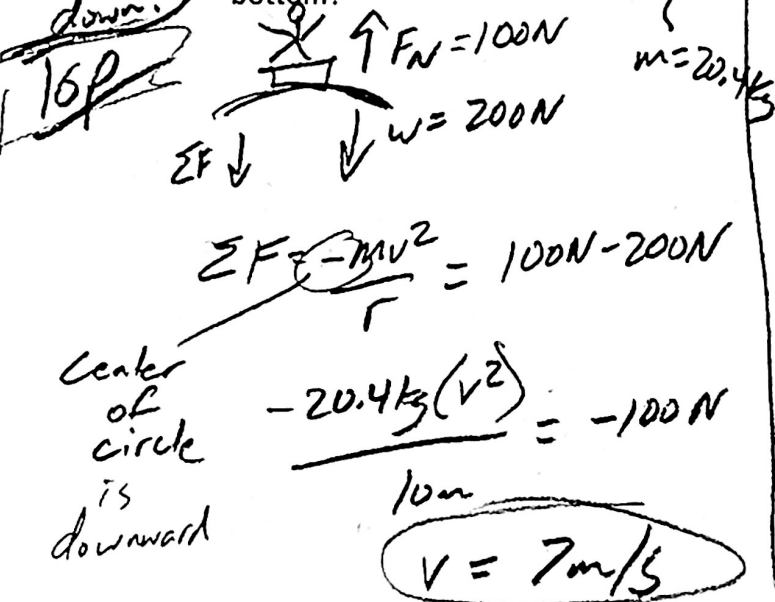 down.
bottom?
16p
↑ F_N = 100N
m = 20.4 kg
ΣF ↓ ↓ w = 200N
ΣF = -mv²/r = 100N - 200N
center
of
circle
is
downward
-20.4kg(v²)/10m = -100N
v = 7m/s